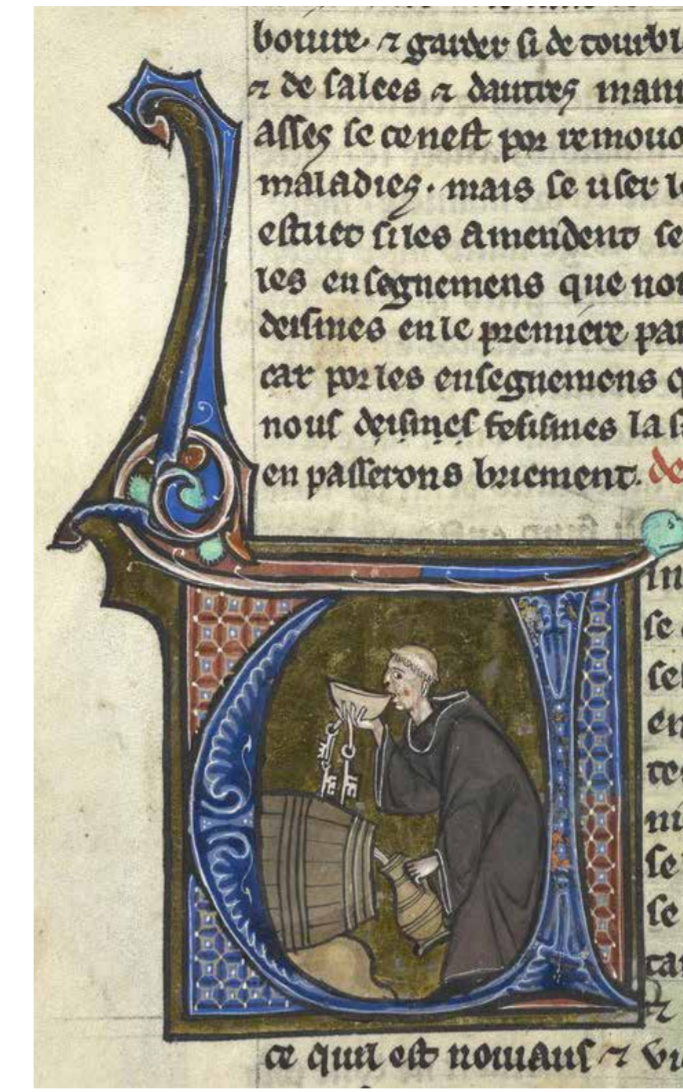 boiure. ⁊ garder si de tourbl
⁊ de salees ⁊ dautres mani
asses se ce nest por remouo
maladies. mais se user le
estuet si les amendent se
les ensegnemens que nou
deisimes en le premiere par
car por les ensegnemens q
nous deisimes fesismes la
en passerons briement. de
in
se
sel
en
tes
ni
se
se
tan
⁊
ce quil est nouiaus ⁊ vi